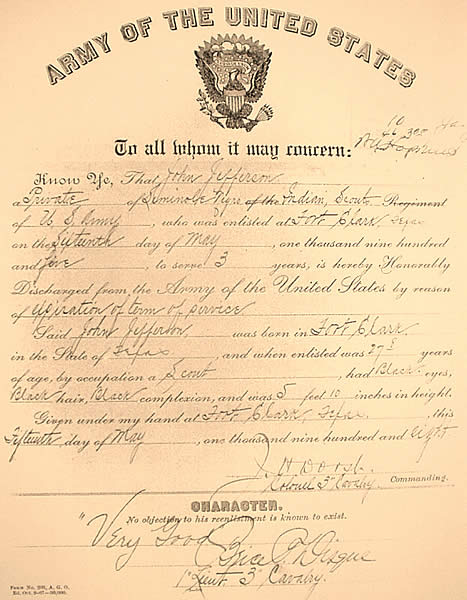 ARMY OF THE UNITED STATES
To all whom it may concern:
Know Ye, That John Jefferson
a Private of Seminole Negro of the Indian Scouts Regiment
of U S Army, who was enlisted at Fort Clark, Texas
on the Fifteenth day of May, one thousand nine hundred
and five, to serve 3 years, is hereby Honorably
Discharged from the Army of the United States by reason
of Expiration of term of service
Said John Jefferson was born in Fort Clark
in the State of Texas, and when enlisted was 27 years
of age, by occupation a Scout, had Black eyes,
Black hair, Black complexion, and was 5 feet 10 inches in height.
Given under my hand at Fort Clark, Texas, this
Fifteenth day of May, one thousand nine hundred and eight
Colonel 3" Cavalry Commanding.
CHARACTER.
No objection to his reenlistment is known to exist.
"Very Good
1" Lieut 3" Cavalry.
Form No. 525, A. G. O.